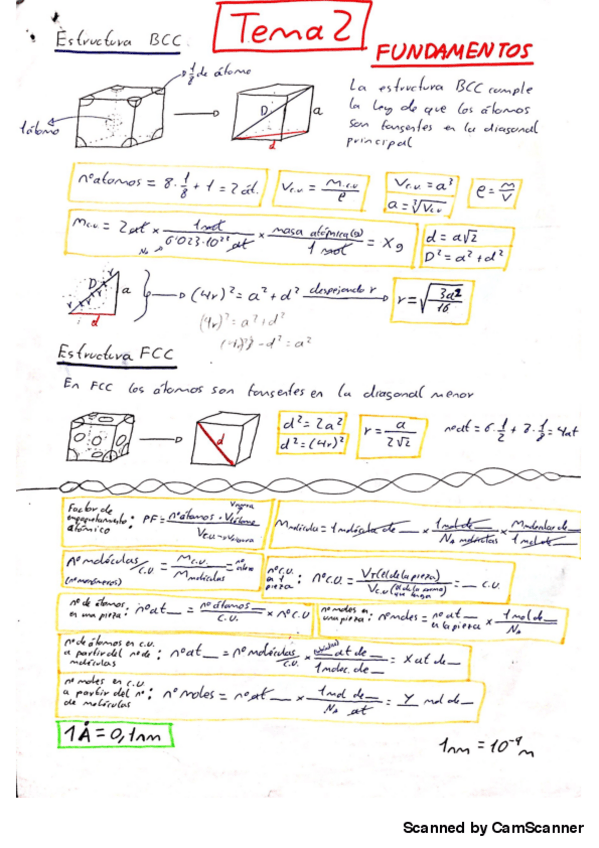 Tema 2
Estructura BCC
FUNDAMENTOS
1/8 de átomo
1 átomo
D
a
d
La estructura BCC cumple
la ley de que los átomos
son tangentes en la diagonal
principal
nº atomos = 8 · 1/8 + 1 = 2 át.
Vc.u = Mc.u / e
Vc.u = a³
a = ∛Vc.u
e = m/V
Mc.u = 2 at × 1 mol / 6'023·10²³ at × masa atómica(g) / 1 mol = X g
NA
d = a√2
D² = a² + d²
D
a
d
(4r)² = a² + d² despejando r
r = √(3a²/16)
(4r)² = a² + d²
- d² = a²
Estructura FCC
En FCC los átomos son tangentes en la diagonal menor
d
d² = 2a²
d² = (4r)²
r = a / 2√2
nºat = 6 · 1/2 + 8 · 1/8 = 4at
Factor de
empaquetamiento : PF = nº átomos · Vátomo / Vc.u
atómico
Mmolécula = 1 molécula de __ × 1 mol de __ / NA moléculas × Mmolecular de __ / 1 mol de __
nº moléculas / C.U = Mc.u / Mmoléculas
(nº monómeros)
nº C.U.
en 1
pieza : nº C.U. = VT (el de la pieza) / Vc.u = __ C.U.
nº de átomos
en una pieza : nº at __ = nº átomos __ / C.U. × nº C.U
nº moles en
una pieza : nº moles = nº at __ en la pieza × 1 mol de __ / NA
nº de átomos en c.u.
a partir del nº de : nº at __ = nº moléculas / C.U. × at de __ / 1 molec. de __ = X at de __
moléculas
nº moles en c.u.
a partir del nº : nº moles = nº at __ × 1 mol de __ / NA at = Y mol de __
de moléculas
1 Å = 0,1nm
1nm = 10⁻⁹ m
Scanned by CamScanner